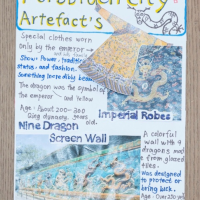 Forbidden City
Artefact's
Special clothes worn
only by the emperor →
Show: Power, tradition,
status, and fashion.
Something loose dibby
The dragon was the symbol of
the emperor and yellow
Age: About 200-300
Qing dynasty. years old.
Imperial Robes
Nine Dragon
Screen Wall
A colorful
wall with 9
dragons mad
e from glazed
tiles.
was designed
to protect or
bring luck.
Age: Over 250 yrs